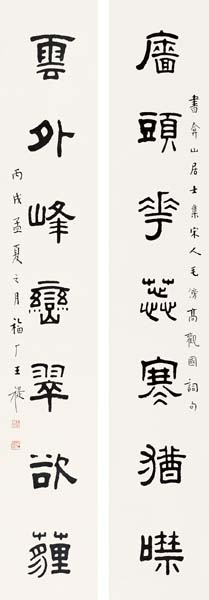 書弇山居士集宋人毛滂高觀國詞句
廧頭華蕊寒猶噤
雲外峰巒翠欲薶
丙戌孟夏之月福厂王禔